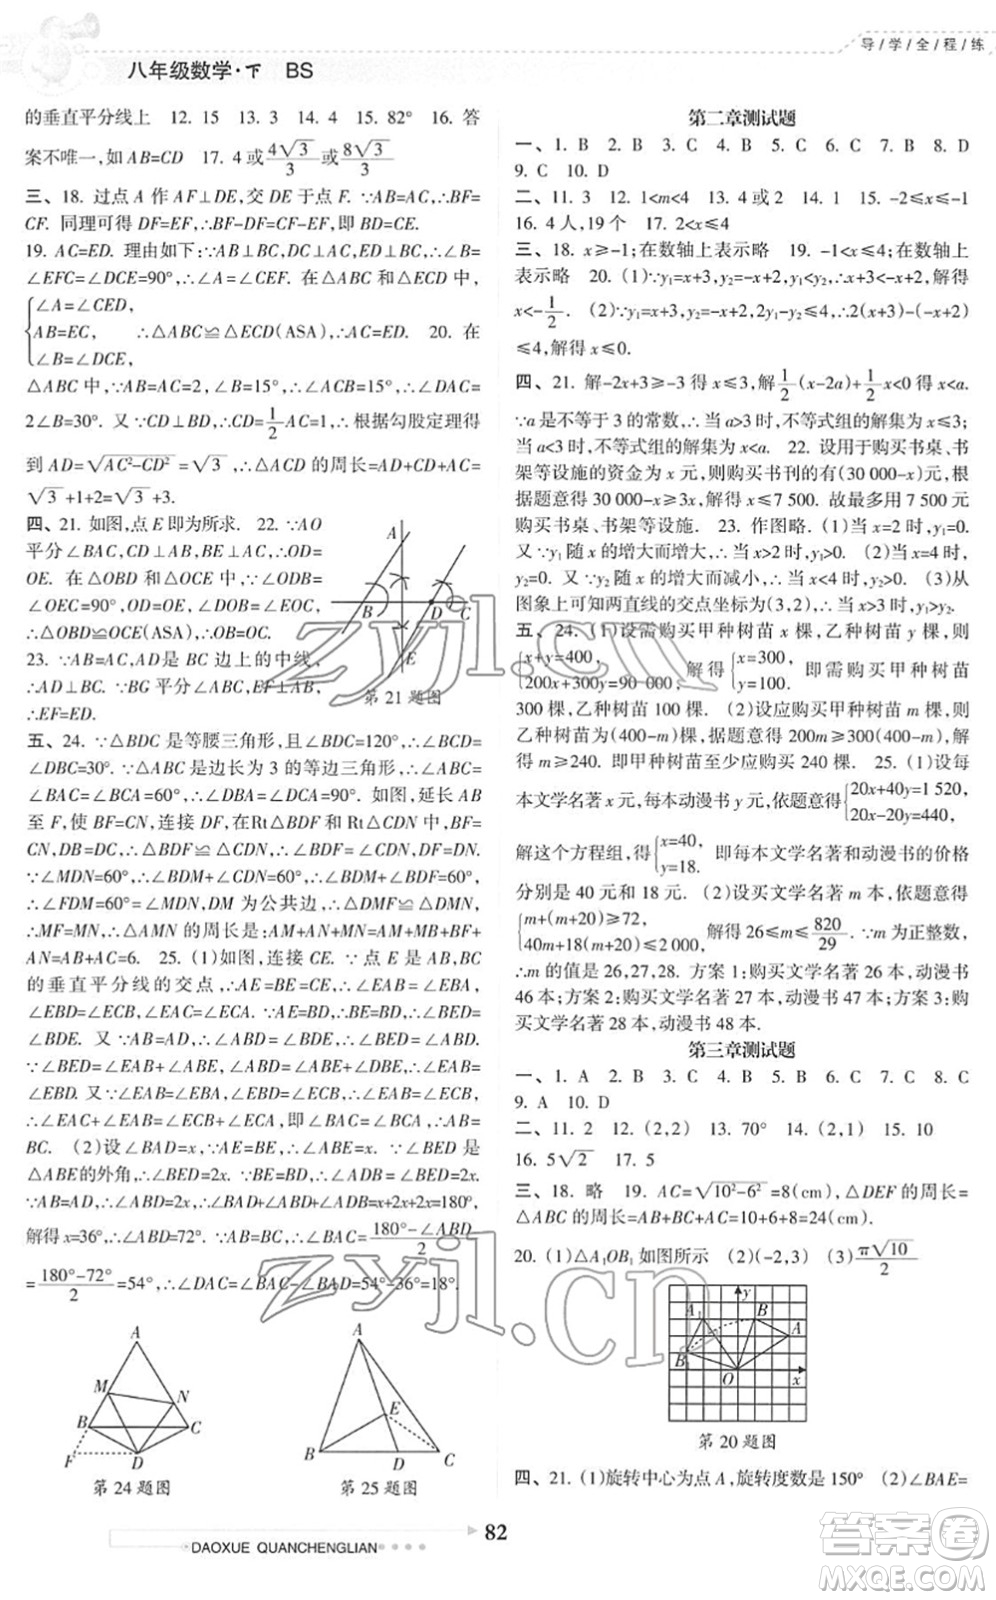 导/学/全/程/练
八年级数学·下 BS
的垂直平分线上 12. 15 13. 3 14. 4 15. 82° 16. 答
案不唯一,如 AB=CD 17. 4 或4√3/3或8√3/3
三、18. 过点 A 作 AF⊥DE,交 DE 于点 F. ∵AB=AC,∴BF=
CF. 同理可得 DF=EF,∴BF-DF=CF-EF,即 BD=CE.
19. AC=ED. 理由如下:∵AB⊥BC,DC⊥BC,EF⊥AC,∴∠B=
∠EFC=∠DCE=90°,∴∠A=∠CEF. 在 △ABC 和 △ECD 中,
{∠A=∠CED,
AB=EC, ∴△ABC≌△ECD(ASA),∴AC=ED. 20. 在
∠B=∠DCE,
△ABC 中,∵AB=AC=2,∠B=15°,∴∠ACB=15°,∴∠DAC=
2∠B=30°. 又∵CD⊥BD,∴CD=1/2AC=1,∴根据勾股定理得
到 AD=√(AC²-CD²)=√3,∴△ACD 的周长=AD+CD+AC=
√3+1+2=√3+3.
四、21. 如图,点 E 即为所求. 22. ∵AO
平分∠BAC,CD⊥AB,BE⊥AC,∴OD=
OE. 在△OBD 和△OCE 中,∵∠ODB=
∠OEC=90°,OD=OE,∠DOB=∠EOC,
∴△OBD≌OCE(ASA),∴OB=OC.
23. ∵AB=AC,AD是 BC 边上的中线,
∴AD⊥BC. ∵BG 平分∠ABC,EF⊥AB,
∴EF=ED.
A
B
D
C
E
第 21 题图
五、24. ∵△BDC 是等腰三角形,且∠BDC=120°,∴∠BCD=
∠DBC=30°. ∵△ABC 是边长为 3 的等边三角形,∴∠ABC=
∠BAC=∠BCA=60°,∴∠DBA=∠DCA=90°. 如图,延长 AB
至 F,使 BF=CN,连接 DF,在Rt△BDF 和Rt△CDN 中,BF=
CN,DB=DC,∴△BDF≌△CDN,∴∠BDF=∠CDN,DF=DN.
∵∠MDN=60°,∴∠BDM+∠CDN=60°,∴∠BDM+∠BDF=60°,
∴∠FDM=60°=∠MDN,DM 为公共边,∴△DMF≌△DMN,
∴MF=MN,∴△AMN 的周长是:AM+AN+MN=AM+MB+BF+
AN=AB+AC=6. 25. (1)如图,连接 CE. ∵点 E 是 AB,BC
的垂直平分线的交点,∴AE=BE=CE,∴∠EAC=∠ECA,
∠EBD=∠ECB,∠EAC=∠ECA. ∵AE=BE,∴∠ABE=∠BAE. 又
∵∠BED=∠EAB+∠ABE,∠ABC=∠ABE+∠EBD,∴∠BAE=
∠EBD. 又∵∠EAB=∠ABE,∠EBD=∠ECB,∠EAC=∠ECA,
∴∠EAC+∠EAB=∠ECB+∠ECA,即∠BAC=∠BCA,∴AB=
BC. (2)设∠BAD=x. ∵AE=BE,∴∠ABE=x. ∵∠BED 是
△ABE的外角,∴∠BED=2x. ∵AB=BD,∴∠ADB=∠BED=2x.
∵AB=AD=2x,∴∠ADB=2x,∴∠BAD+∠ABD+∠ADB=x+2x+2x=180°,
解得 x=36°,∴∠ABD=72°. ∵AB=BC,∴∠BAC=(180°-∠ABD)/2
=(180°-72°)/2=54°,∴∠DAC=∠BAC-∠BAD=54°-36°=18°.
A
M
N
B
C
F
D
第 24 题图
A
E
B
D
C
第 25 题图
第二章测试题
一、1. B 2. B 3. C 4. B 5. B 6. D 7. B 8. D
9. C 10. D
二、11. 3 12. 1<m<4 13. 4 或 2 14. 1 15. -2≤x≤-1
16. 4 人,19 个 17. 2<x≤4
三、18. x≥-1;在数轴上表示略 19. -1<x≤4;在数轴上
表示略 20. (1)∵y₁=x+3,y₂=-x+2,y₁<y₂,∴x+3<-x+2,解得
x<-1/2. (2)∵y₁=x+3,y₂=-x+2,2y₁-y₂≤4,∴2(x+3)-(-x+2)
≤4,解得 x≤0.
四、21. 解-2x+3≥-3 得 x≤3,解1/2(x-2a)+1/2x<0得 x<a.
∵a 是不等于 3 的常数,∴当 a>3 时,不等式组的解集为 x≤3;
当 a<3 时,不等式组的解集为 x<a. 22. 设用于购买书桌、书
架等设施的资金为 x 元,则购买书刊的有(30 000-x)元,根
据题意得 30 000-x≥3x,解得 x≤7 500. 故最多用 7 500 元
购买书桌、书架等设施. 23. 作图略. (1)当 x=2 时,y₁=0.
又∵y₁ 随 x 的增大而增大,∴当 x>2 时,y₁>0. (2)当 x=5 时,
y₂=0. 又∵y₂随 x 的增大而减小,∴当 x>5 时,y₂<0. (3)从
图象上可知两直线的交点坐标为(3,2),∴当 x>3 时,y₁>y₂.
五、24. (1)设需购买甲种树苗 x 棵,乙种树苗 y 棵,则
{x+y=400,
200x+300y=90 000, 解得{x=300,
y=100. 即需购买甲种树苗
300 棵,乙种树苗 100 棵. (2)设应购买甲种树苗 m 棵,则购买
乙种树苗为(400-m)棵,据题意得 200m≥300(400-m),解
得 m≥240. 即甲种树苗至少应购买 240 棵. 25. (1)设每
本文学名著 x 元,每本动漫书 y 元,依题意得{20x+40y=1 520,
20x-20y=440,
解这个方程组,得{x=40,
y=18. 即每本文学名著和动漫书的价格
分别是 40 元和 18 元. (2)设买文学名著 m 本,依题意得
{m+(m+20)≥72,
40m+18(m+20)≤2 000, 解得 26≤m≤820/29. ∵m 为正整数,
∴m 的值是 26,27,28. 方案 1:购买文学名著 26 本,动漫书
46 本;方案2:购买文学名著 27 本,动漫书47本;方案 3:购买
文学名著 28 本,动漫书 48 本.
第三章测试题
一、1. A 2. B 3. C 4. B 5. B 6. C 7. C 8. C
9. A 10. D
二、11. 2 12. (2,2) 13. 70° 14. (2,1) 15. 10
16. 5√2 17. 5
三、18. 略 19. AC=√(10²-6²)=8(cm),△DEF 的周长=
△ABC 的周长=AB+BC+AC=10+6+8=24(cm).
20. (1)△A₁OB₁ 如图所示 (2)(-2,3) (3)π√10/2
y
A₁
B
A
B₁
O
x
第 20 题图
四、21. (1)旋转中心为点 A,旋转度数是 150° (2)∠BAE=
82
DAOXUE QUANCHENGLIAN
zyjl.cn
zyjl.cn
答案圈
MXQE.COM